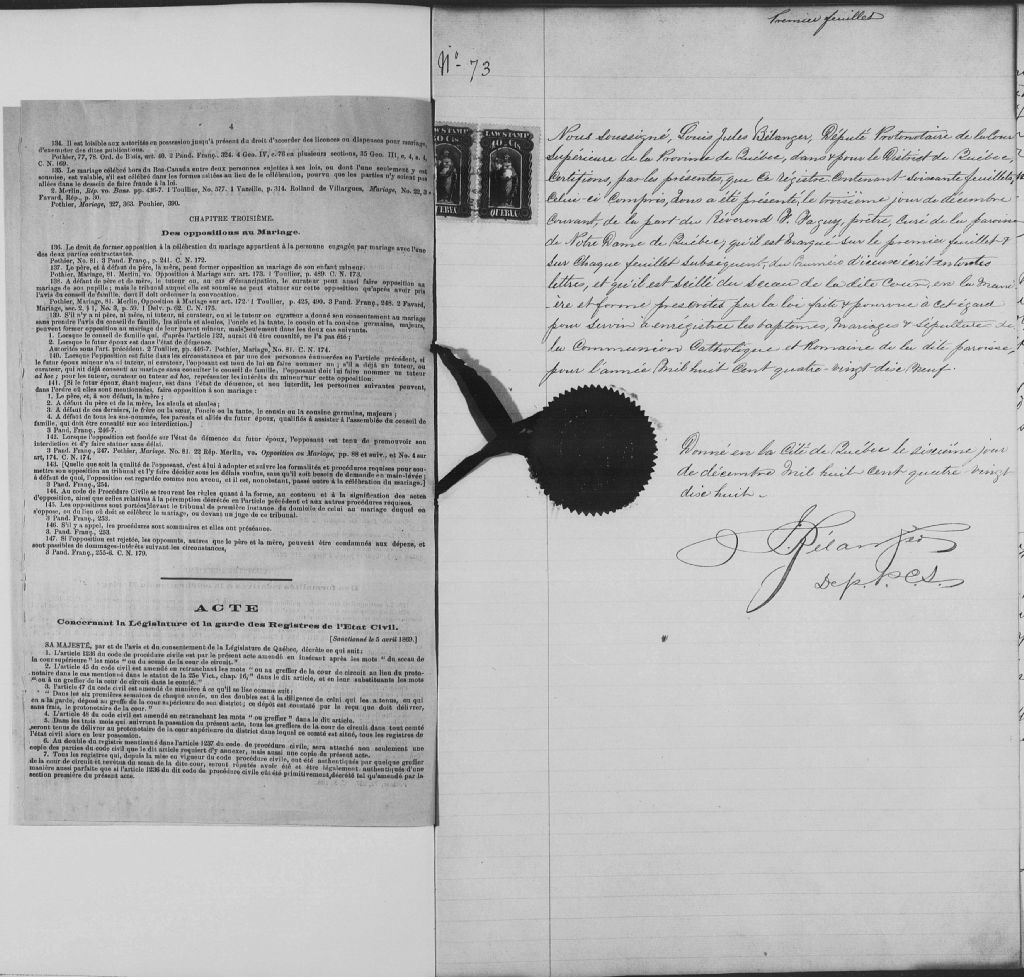 4
134. Il est loisible aux autorités en possession jusqu'à présent du droit d'accorder des licences ou dispenses pour mariage,
d'exempter des dites publications.
Pothier, 77, 78. Ord. de Blois, art. 40. 2 Pand. Franç., 324. 4 Geo. IV, c. 76 en plusieurs sections, 35 Geo. III, c. 4, s. 4,
C. N. 169.
135. Le mariage célébré hors du Bas-Canada entre deux personnes sujettes à ses lois, ou dont l'une seulement y est
soumise, est valable, s'il est célébré dans les formes usitées au lieu de la célébration, pourvu que les parties n'y soient pas
allées dans le dessein de faire fraude à la loi.
2 Merlin, Rép. vo. Bans. pp. 436-7. 1 Toullier, No. 577. 1 Vazeille, p. 314. Rolland de Villargues, Mariage, No. 22, 3
Favard, Rép., p. 30.
Pothier, Mariage, 227, 363. Pouhier, 390.
CHAPITRE TROISIÈME.
Des oppositions au Mariage.
136. Le droit de former opposition à la célébration du mariage appartient à la personne engagée par mariage avec l'une
des deux parties contractantes.
Pothier, No. 81. 3 Pand. Franç., p. 241. C. N. 172.
137. Le père, et à défaut du père, la mère, peut former opposition au mariage de son enfant mineur.
Pothier, Mariage, 81. Merlin, vo. Opposition à Mariage sur. art. 173. 1 Toullier, p. 489. C. N. 173.
138. A défaut de père et de mère, le tuteur ou, au cas d'émancipation, le curateur peut aussi faire opposition au
mariage de son pupille; mais le tribunal auquel elle est soumise ne peut statuer sur cette opposition qu'après avoir pris
l'avis du conseil de famille, dont il doit ordonner la convocation.
Pothier, Mariage, 81. Merlin, Opposition à Mariage sur art. 172. 1 Toullier, p. 425, 490. 3 Pand. Franç., 248. 2 Favard,
Mariage, sec. 2, § 1, No. 3, p. 57. 1 Delv. p. 62. C. N. 175.
139. S'il n'y a ni père, ni mère, ni tuteur, ni curateur, ou si le tuteur ou curateur a donné son consentement au mariage
sans prendre l'avis du conseil de famille, les aïeuls et aïeules, l'oncle et la tante, le cousin et la cousine germains, majeurs,
peuvent former opposition au mariage de leur parent mineur, mais seulement dans les deux cas suivants.
1. Lorsque le conseil de famille qui, d'après l'article 122, aurait dû être consulté, ne l'a pas été;
2. Lorsque le futur époux est dans l'état de démence.
Autorités sous l'art. précédent. 2 Toullier, pp. 446-7. Pothier, Mariage, No. 81. C. N. 174.
140. Lorsque l'opposition est faite dans les circonstances et par une des personnes énumérées en l'article précédent, si
le futur époux mineur n'a ni tuteur, ni curateur, l'opposant est tenu de lui en faire nommer un; s'il a déjà un tuteur, ou
curateur, qui ait déjà consenti au mariage sans consulter le conseil de famille, l'opposant doit lui faire nommer un tuteur
ad hoc; pour les tuteur, curateur ou tuteur ad hoc, représenter les intérêts du mineur sur cette opposition.
141. [Si le futur époux, étant majeur, est dans l'état de démence, et non interdit, les personnes suivantes peuvent,
dans l'ordre où elles sont mentionnées, faire opposition à son mariage:
1. Le père, et, à son défaut, la mère;
2. A défaut du père et de la mère, les aïeuls et aïeules;
3. A défaut de ces derniers, le frère ou la sœur, l'oncle ou la tante, le cousin ou la cousine germains, majeurs;
4. A défaut de tous les sus-nommés, les parents et alliés du futur époux, qualifiés à assister à l'assemblée du conseil de
famille, qui doit être consulté sur son interdiction.]
3 Pand. Franç., 246-7.
142. Lorsque l'opposition est fondée sur l'état de démence du futur époux, l'opposant est tenu de promouvoir son
interdiction et d'y faire statuer sans délai.
3 Pand. Franç., 247. Pothier, Mariage. No. 81. 22 Rép. Merlin, vo. Opposition au Mariage, pp. 88 et suiv., et No. 4 sur
art. 174. C. N. 174.
143. [Quelque que soit la qualité de l'opposant, c'est à lui à adopter et suivre les formalités et procédures requises pour soumettre
son opposition au tribunal et l'y faire décider sous les délais voulus, sans qu'il soit besoin de demande en main-levée;
à défaut de quoi, l'opposition est regardée comme non avenu, et il est, nonobstant, passé outre à la célébration du mariage.]
3 Pand. Franç., 254.
144. Au code de Procédure Civile se trouvent les règles quant à la forme, au contenu et à la signification des actes
d'opposition, ainsi que celles relatives à la péremption décrétée en l'article précédent et aux autres procédures requises.
145. Les oppositions sont portées devant le tribunal de première instance du domicile de celui au mariage duquel on
s'oppose, ou du lieu où doit se célébrer le mariage, ou devant un juge de ce tribunal.
3 Pand. Franç., 253.
146. S'il y a appel, les procédures sont sommaires et elles ont préséance.
3 Pand. Franç., 253.
147. Si l'opposition est rejetée, les opposants, autres que le père et la mère, peuvent être condamnés aux dépens, et
sont passibles de dommages-intérêts suivant les circonstances,
3 Pand. Franç., 255-6. C. N. 179.
ACTE
Concernant la Législature et la garde des Registres de l'Etat Civil.
[Sanctionné le 5 avril 1869.]
SA MAJESTÉ, par et de l'avis et du consentement de la Législature de Québec, décrète ce qui suit:
1. L'article 1236 du code de procédure civile est par le présent acte amendé en insérant après les mots " du sceau de
la cour supérieure" les mots " ou du sceau de la cour de circuit."
2. L'article 45 du code civil est amendé en retranchant les mots " ou au greffier de la cour de circuit au lieu du protonotaire
dans le cas mentionné dans le statut de la 25e Vict., chap. 16," dans le dit article, et en leur substituant les mots
" ou à un greffier de la cour de circuit dans le comté."
3. l'article 47 du code civil est amendé de manière à ce qu'il se lise comme suit:
" Dans les six premières semaines de chaque année, un des doubles est à la diligence de celui qui les a tenus, ou qui
en a la garde, déposé au greffe de la cour supérieure de son district; ce dépôt est constaté par le reçu que doit délivrer,
sans frais, le protonotaire de la cour."
4. L'article 48 du code civil est amendé en retranchant les mots " ou greffier " dans le dit article.
5. Dans les trois mois qui suivront la passation du présent acte, tous les greffiers de la cour de circuit dans tout comté
seront tenus de délivrer au protonotaire de la cour supérieure du district dans lequel ce comté est situé, tous les registres de
l'état civil alors en leur possession.
6. Au double du registre mentionné dans l'article 1237 du code de procédure civile, sera attaché non seulement une
copie des parties du code civil que le dit article requiert d'y annexer, mais aussi une copie de présent acte.
7. Tous les registres qui, depuis la mise en vigueur du code procédure civile, ont été authentiqués par quelque greffier
de la cour de circuit et revêtus du sceau de la dite cour, seront réputés avoir été et être légalement authentiqués d'une
manière aussi parfaite que si l'article 1236 du dit code de procédure civile eût été primitivement décrété tel qu'amendé par la
section première du présent acte.
Premier feuillet
No. 73
LAW STAMP
LAW STAMP
40 Cts
QUEBEC
QUEBEC
Nous soussigné, Louis Jules Bélanger, Député Protonotaire de la Cour
Supérieure de la Province de Québec, dans & pour le District de Québec,
Certifions, par les présentes, que Ce registre Contenant soixante feuillets,
Celui-ci Compris, Nous a été présenté, le troisième jour de décembre
Courant, de la part du Révérend F. Faguy, prêtre, Curé de la paroisse
de Notre Dame de Québec, qu'il est marqué sur le premier feuillet &
sur Chaque feuillet subséquent, du numéro d'iceux écrit en toutes
lettres, et qu'il est scellé du sceau de la dite Cour, en la mani-
ère et forme prescrites par la loi faite & pourvue à cet égard
pour servir à enregistrer les baptêmes, Mariages & Sépulture de
la Communion Catholique et Romaine de la dite paroisse
pour l'année Mil huit Cent quatre-vingt dix Neuf.
Donné en la Cité de Québec le sixième jour
de décembre Mil huit Cent quatre vingt
dix huit.
LJBélanger
Dep. P. C. S.